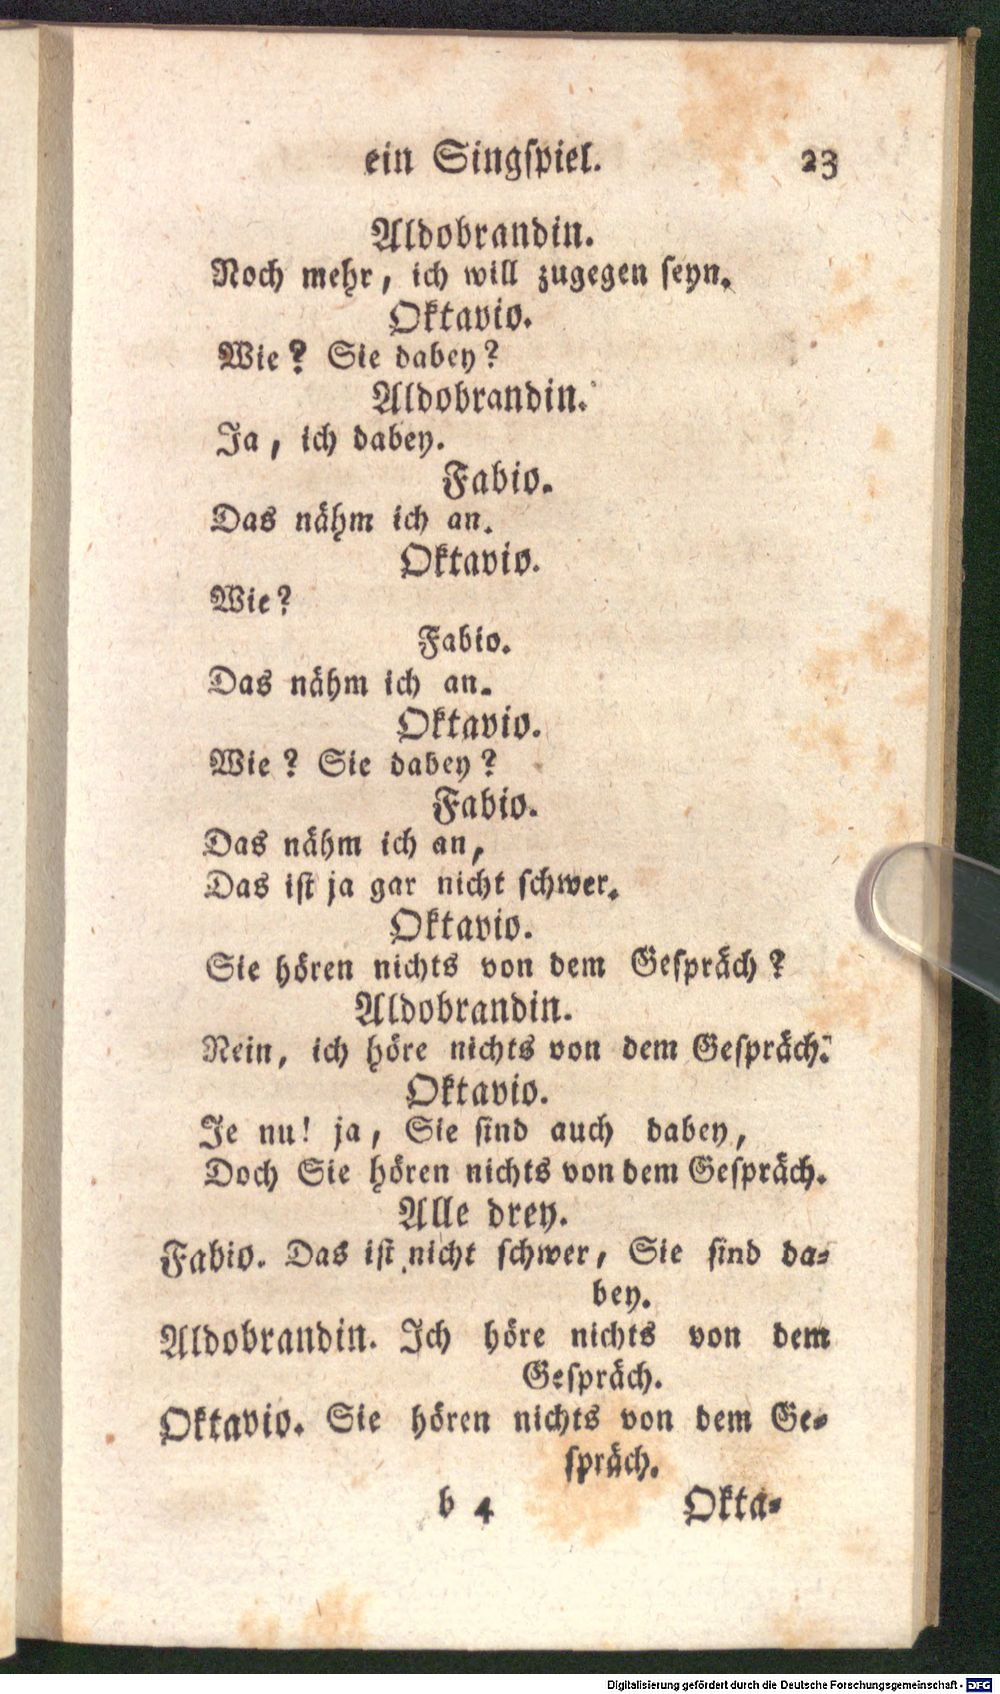 ein Singſpiel. 23
Aldobrandin.
Noch mehr, ich will zugegen ſeyn.
Oktavio.
Wie? Sie dabey?
Aldobrandin.
Ja, ich dabey.
Fabio.
Das nähm ich an.
Oktavio.
Wie?
Fabio.
Das nähm ich an.
Oktavio.
Wie? Sie dabey?
Fabio.
Das nähm ich an,
Das iſt ja gar nicht ſchwer.
Oktavio.
Sie hören nichts von dem Geſpräch?
Aldobrandin.
Nein, ich höre nichts von dem Geſpräch.
Oktavio.
Je nu! ja, Sie ſind auch dabey,
Doch Sie hören nichts von dem Geſpräch.
Alle drey.
Fabio. Das iſt nicht ſchwer, Sie ſind da-
bey.
Aldobrandin. Ich höre nichts von dem
Geſpräch.
Oktavio. Sie hören nichts von dem Ge-
ſpräch.
b 4 Okta-
Digitalisierung gefördert durch die Deutsche Forschungsgemeinschaft - DFG